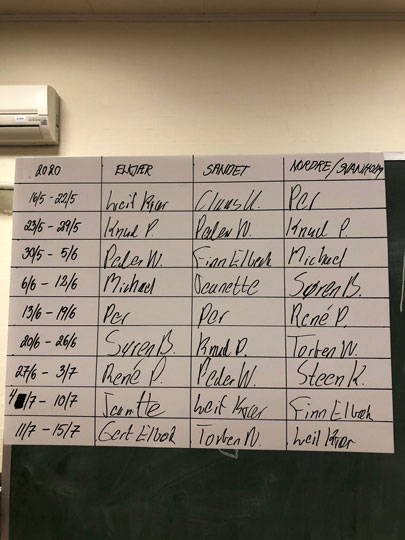 2020 ELKJÆR SANDET NORDRE/SVANHOLM
16/5 - 22/5 Leif Kær Claus U. Per
23/5 - 29/5 Knud P. Peder W. Knud P.
30/5 - 5/6 Peder W. Finn Elbæk Michael
6/6 - 12/6 Michael Jeanette Søren B.
13/6 - 19/6 Per Per René P.
20/6 - 26/6 Søren B. Knud P. Torben W.
27/6 - 3/7 René P. Peder W. Steen K.
4/7 - 10/7 Jeanette Leif Kær Finn Elbæk
11/7 - 15/7 Gert Elbæk Torben W. Leif Kær